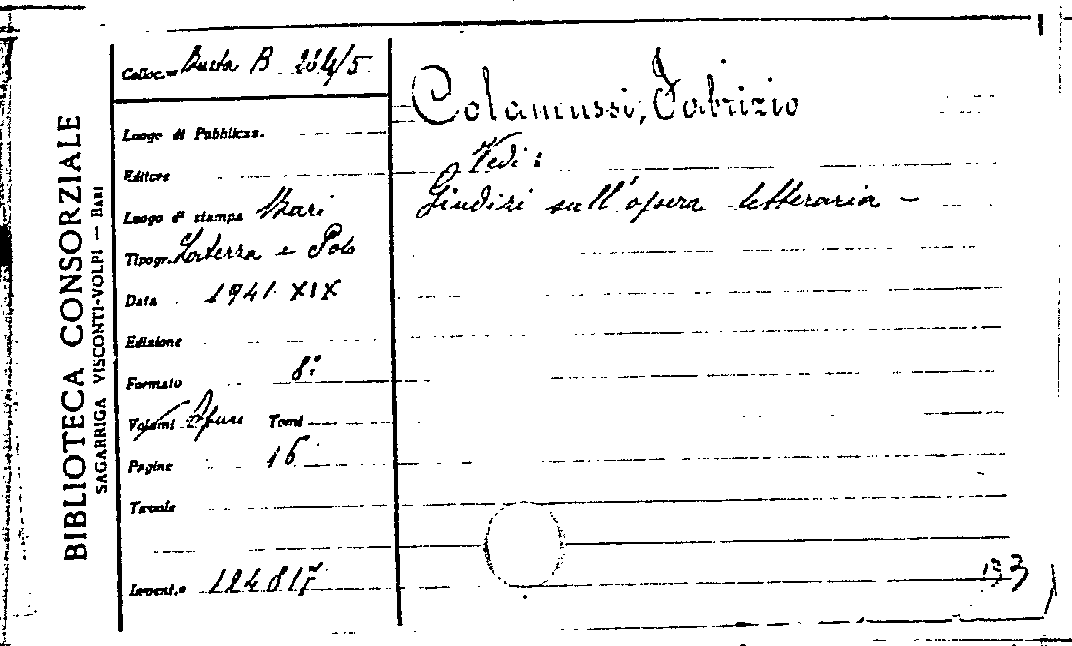 BIBLIOTECA CONSORZIALE
SAGARRIGA VISCONTI-VOLPI — BARI
Colloc. Busta B 264/5
Luogo di Pubblicaz.
Editore
Luogo di stampa Bari
Tipogr. Laterza e Polo
Data 1941 XIX
Edizione
Formato 8°
Volumi Opus Tomi
Pagine 16
Tavole
Invent. 124817
Colamussi, Fabrizio
Vedi:
Giudizi sull'opera letteraria -
133